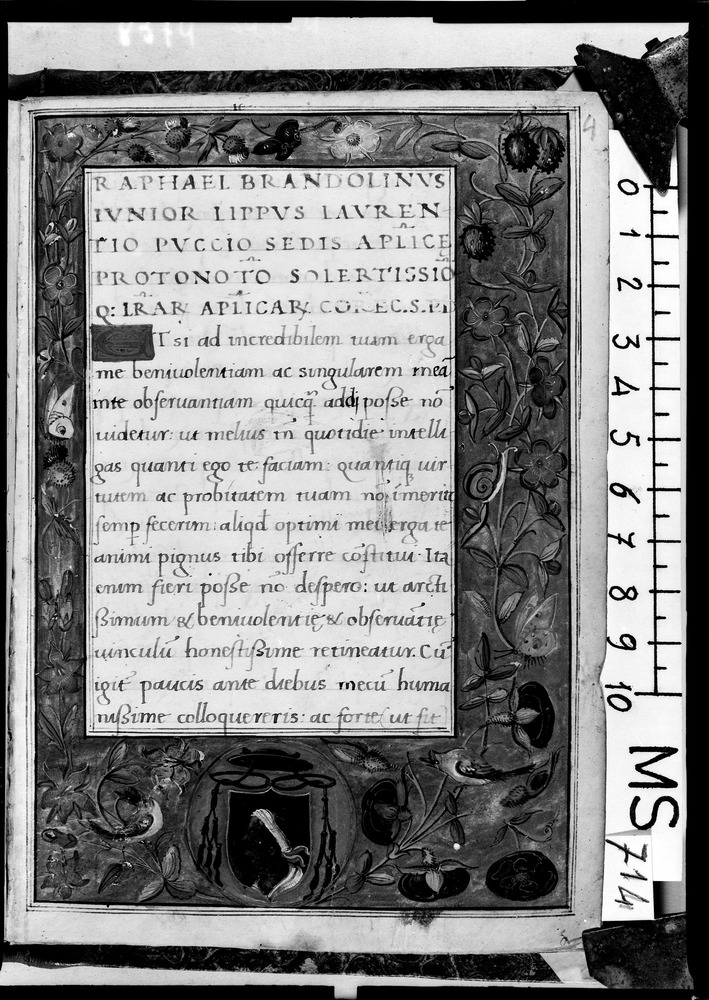 RAPHAEL BRANDOLINVS
IVNIOR LIPPVS LAVREN-
TIO PVCCIO SEDIS APLICĘ
PROTONOTO SOLERTISSIO
Q: LRAR APLICAR COREC. S. P.
ETsi ad incredibilem tuam erga
me beniuolentiam ac singularem meā
inte obseruantiam quicq̄ addi posse nō
uidetur: ut melius tn̄ quotidie intelli
gas quanti ego te faciam: quantiq; uir
tutem ac probitatem tuam nō īmerito
semp fecerim: aliqd optimi mei erga te
animi pignus tibi offerre cōstitui. Ita
enim fieri posse nō despero: ut arcti
ßimum & beniuolentię & obseruātię
uinculū honestißime retineatur. Cū
igit̄ paucis ante diebus mecū huma
nißime colloquereris: ac forte (ut fit
4
0 1 2 3 4 5 6 7 8 9 10
MS
714